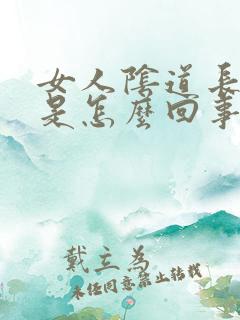 女人陰道長
是怎麼回事
戴立為
未經同意禁止轉載